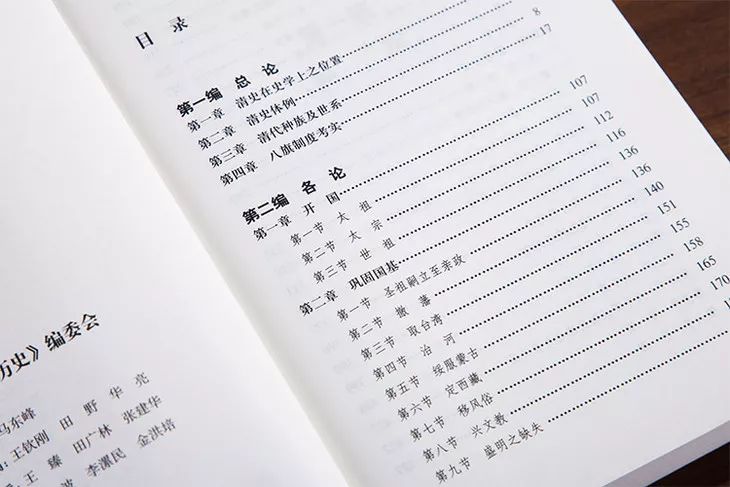 目 录
第一编 总 论
第一章 清史在史学上之位置
第二章 清史体例
第三章 清代种族及世系 8
第四章 八旗制度考实 17
第二编 各 论
第一章 开 国 107
第一节 太 祖 107
第二节 太 宗 112
第三节 世 祖 116
第二章 巩固国基 136
第一节 圣祖嗣立至亲政 136
第二节 撤 藩 140
第三节 取台湾 151
第四节 治 河 155
第五节 绥服蒙古 158
第六节 定西藏 165
第七节 移风俗 170
第八节 兴文教
第九节 盛明之缺失
历史》编委会
马东峰
王钦刚 田 野 华 亮
王 臻 田广林 张建华
波 李漯民 金洪培